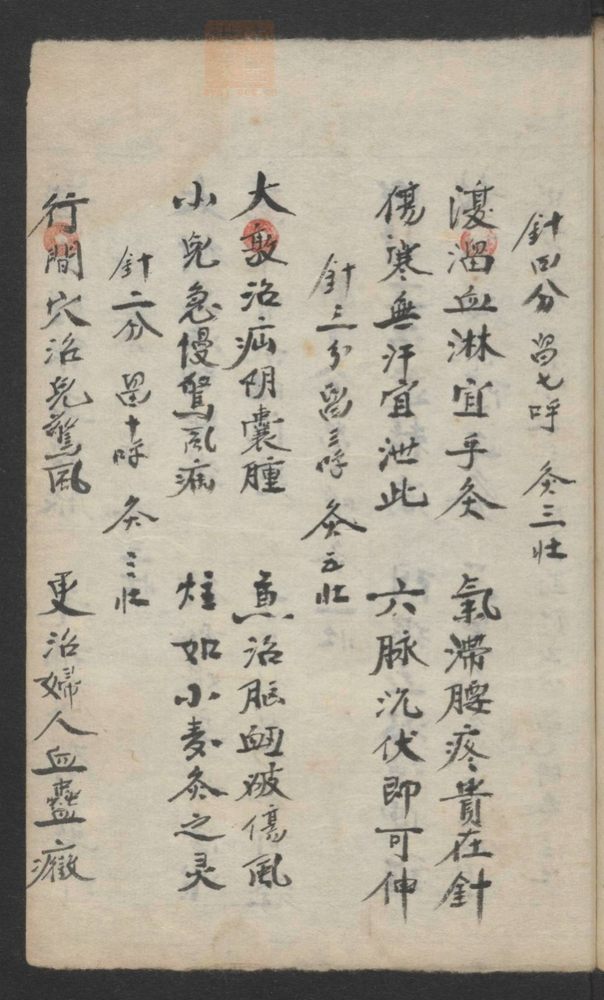 針四分 留七呼 灸三壯
澓溜血淋宜乎灸 氣滯腰疼貴在針
傷寒無汗宜泄此 六脉沉伏即可伸
針三分 留三呼 灸五壯
大敦治疝阴囊腫 兼治脳衄破傷風
小兒急慢驚風痫 炷如小麦灸之灵
針二分 留十呼 灸三壯
行間穴治兒驚風 更治婦人血蠱癥